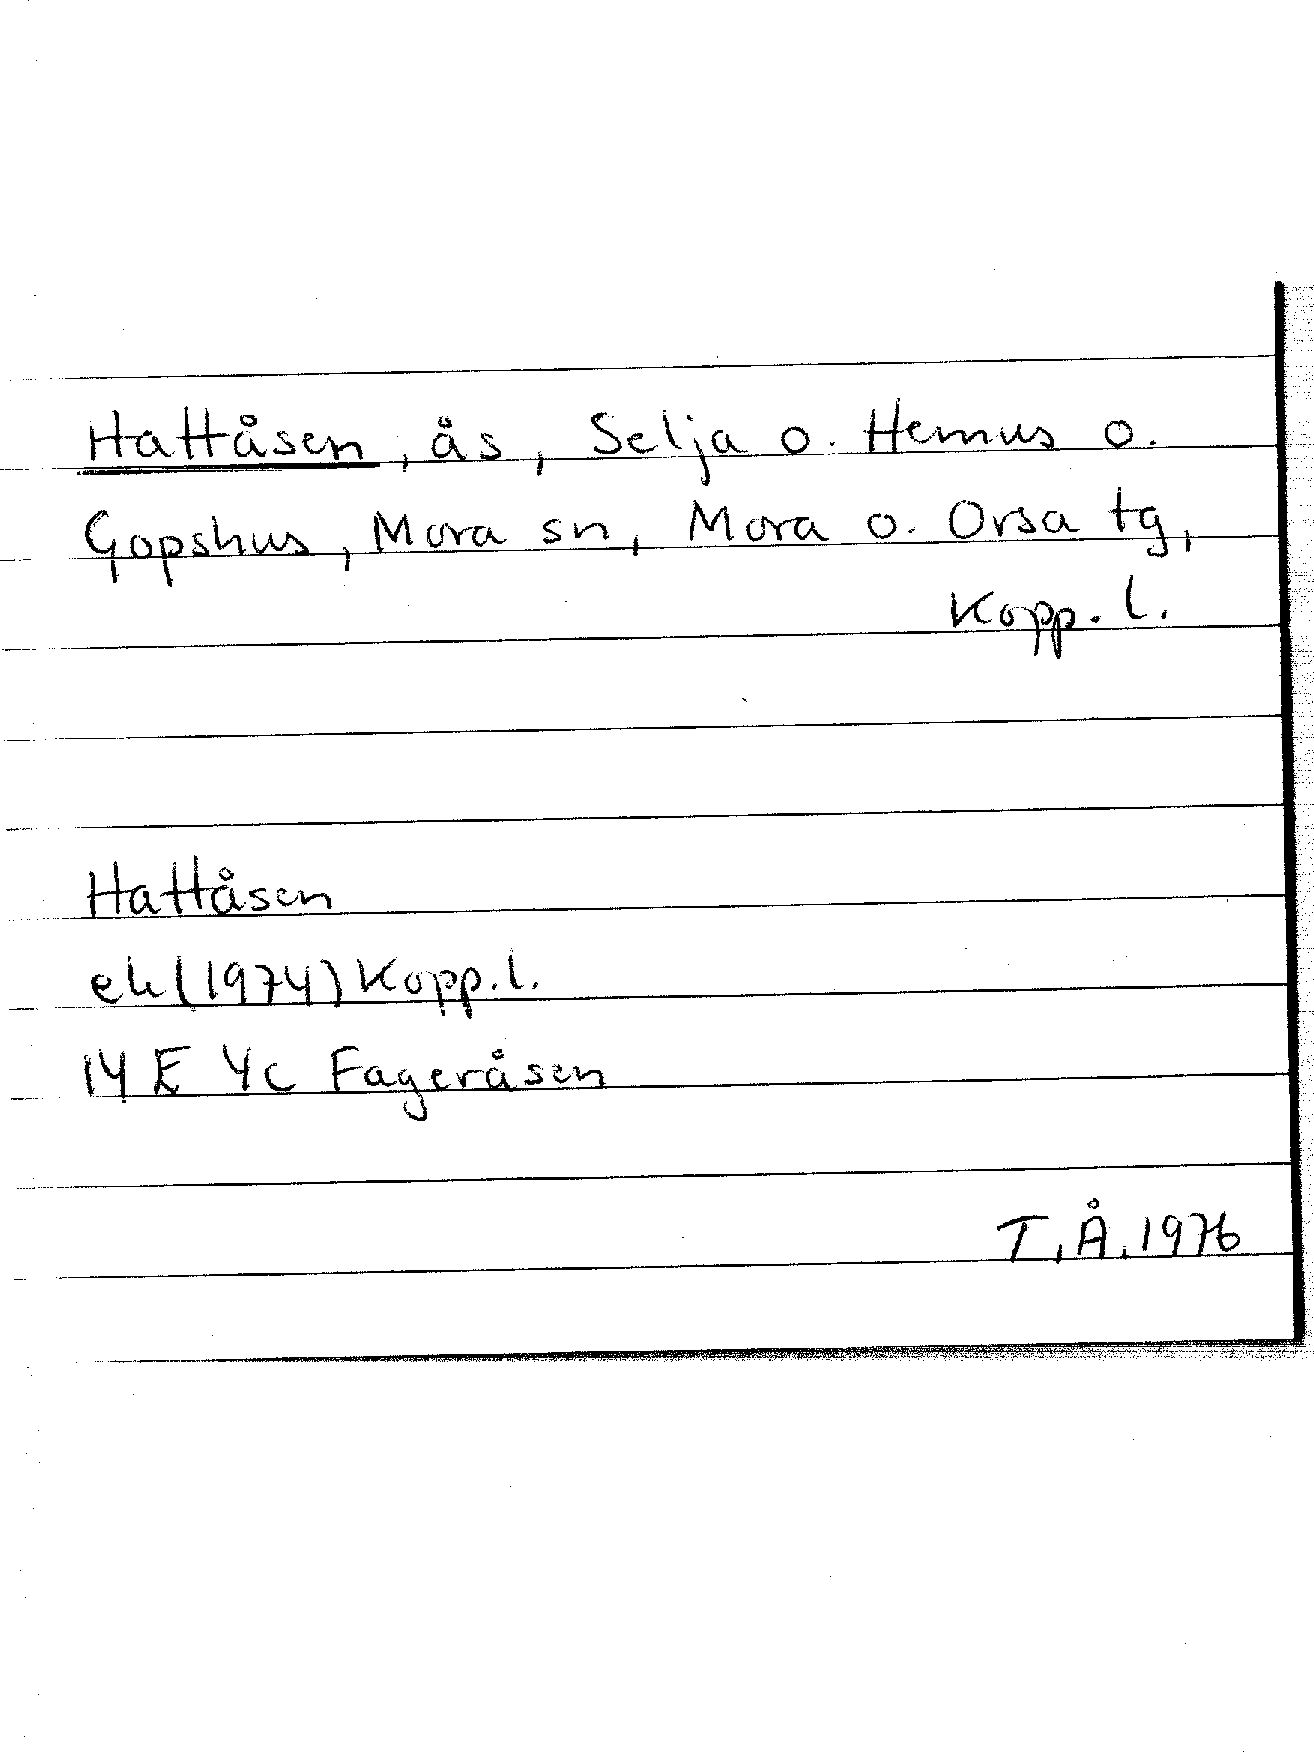 Hattåsen, ås, Selja o. Hemus o.
Gopshus, Mora sn, Mora o. Orsa tg,
Kopp. l.
Hattåsen
ek (1974) Kopp. l.
14 E 4c Fageråsen
T.Å. 1976